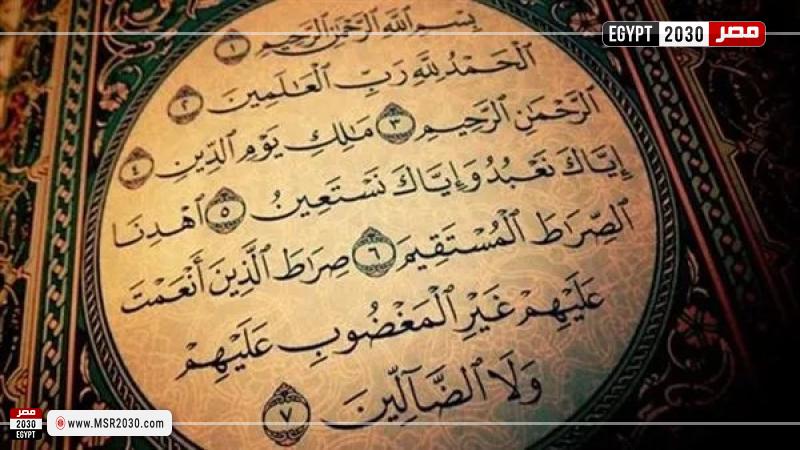 EGYPT 2030 مصر
بِسْمِ ٱللَّهِ ٱلرَّحْمَٰنِ ٱلرَّحِيمِ ١
ٱلْحَمْدُ لِلَّهِ رَبِّ ٱلْعَٰلَمِينَ ٢
ٱلرَّحْمَٰنِ ٱلرَّحِيمِ ٣ مَٰلِكِ يَوْمِ ٱلدِّينِ ٤
إِيَّاكَ نَعْبُدُ وَإِيَّاكَ نَسْتَعِينُ ٥ ٱهْدِنَا
ٱلصِّرَٰطَ ٱلْمُسْتَقِيمَ ٦ صِرَٰطَ ٱلَّذِينَ أَنْعَمْتَ
عَلَيْهِمْ غَيْرِ ٱلْمَغْضُوبِ عَلَيْهِمْ
وَلَا ٱلضَّآلِّينَ ٧
مصر
2030
EGYPT
www.MSR2030.com